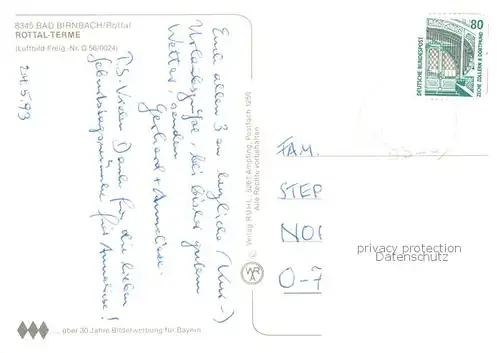 8345 BAD BIRNBACH/Rottal
ROTTAL-TERME
(Luftbild-Freig.-Nr. G 56/0024)
24.5.93
Euch allen 3 en herzliche (Kur-)
Urlaubsgrüße, bei bisher gutem
Wetter, senden
Gerhard + Anneliese.
P.S. Vielen Dank für die lieben
Geburtstagswünsche für Anneliese!
... über 30 Jahre Bilderwerbung für Bayern
© Verlag RÜHL, 8261 Ampfing, Postfach 1250
Alle Rechte vorbehalten
80
DEUTSCHE BUNDESPOST
ZECHE ZOLLERN II DORTMUND
FAM.
STEP
NO
O-7
privacy protection
Datenschutz